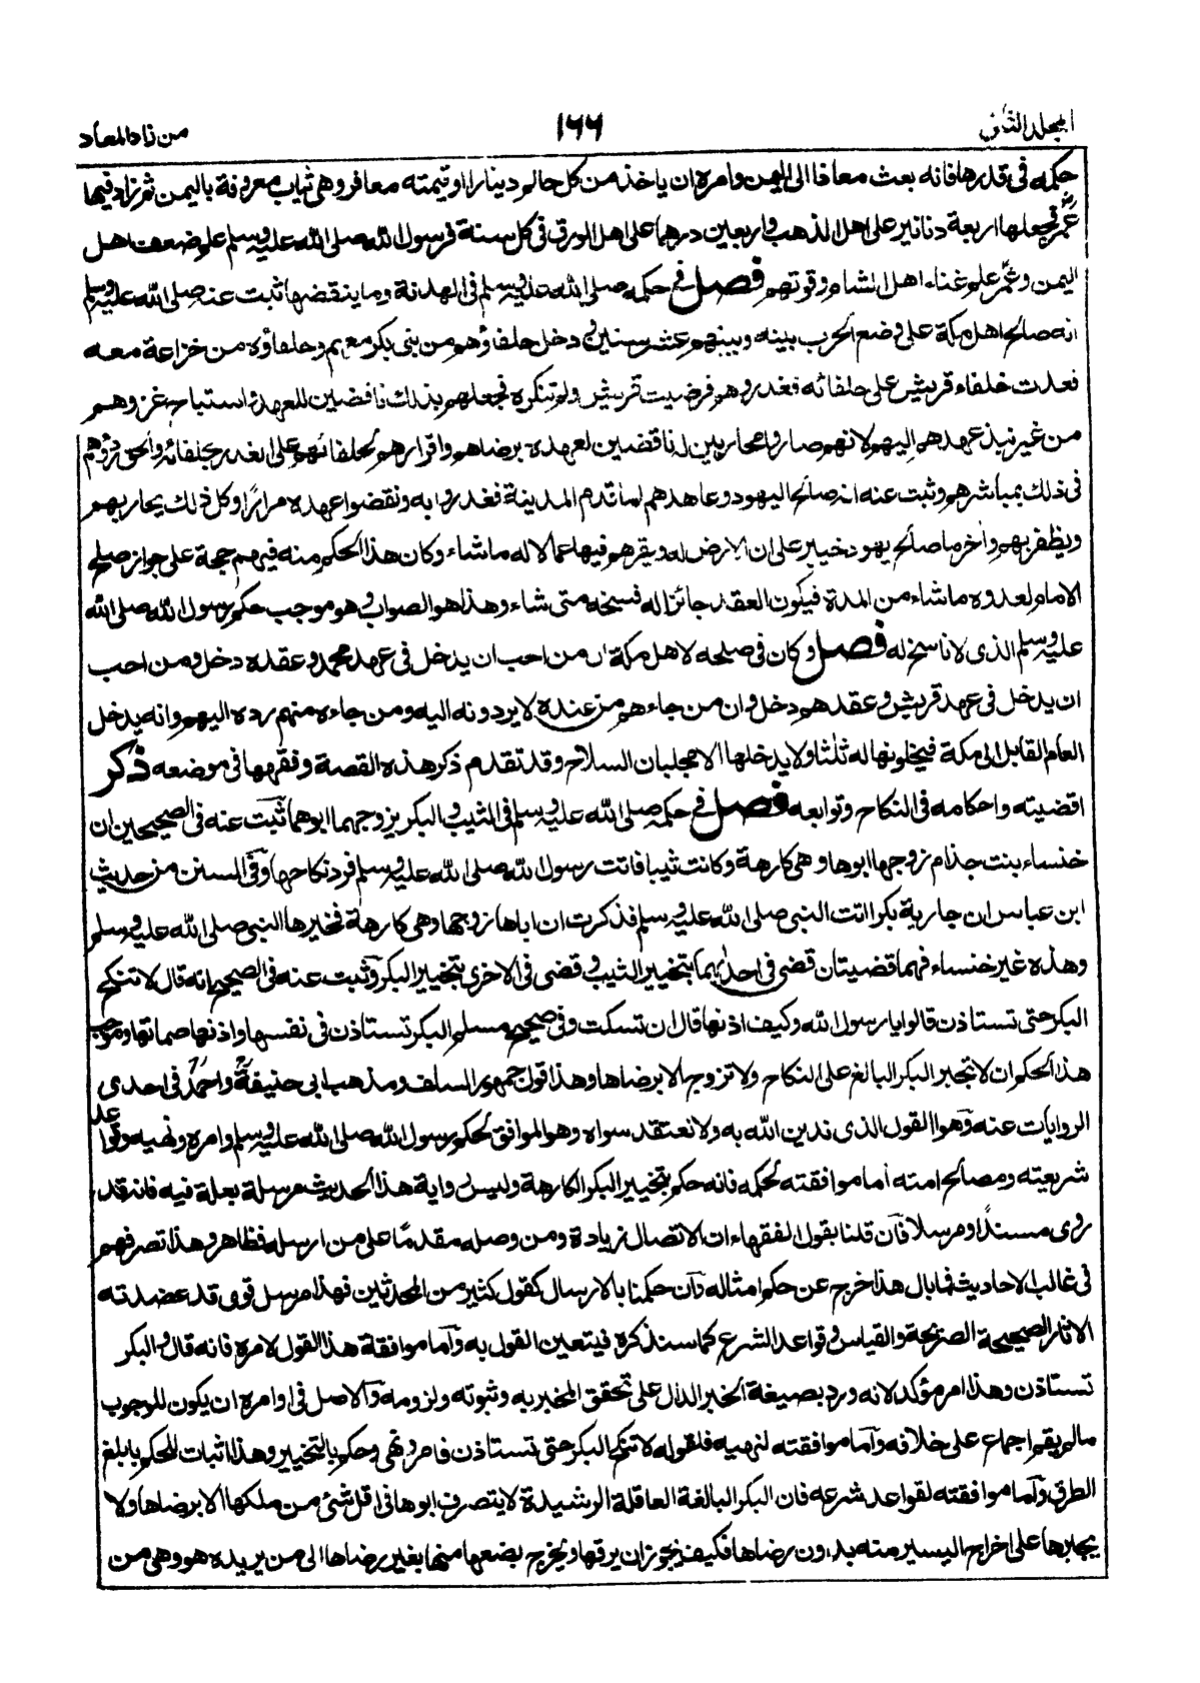 المجلد الثانى
١٦٦
من زاد المعاد
حكمه فى قدرها فانه بعث معاذا الى اليمن وامره ان ياخذ من كل حالم دينارا او قيمته معافر وهى ثياب معروفة باليمن ثم زاد فيها
عمر فجعلها اربعة دنانير على اهل الذهب واربعين درهما على اهل الورق فى كل سنة فرسول الله صلى الله عليه وسلم علم ضعف اهل
اليمن وعمر علم غناء اهل الشام وقوتهم فصل فى حكمه صلى الله عليه وسلم فى الهدنة وما ينقضها ثبت عنه صلى الله عليه وسلم
انه صالح اهل مكة على وضع الحرب بينه وبينهم عشر سنين ودخل حلفاؤهم من بنى بكر معهم وحلفاؤه من خزاعة معه
فعدت حلفاء قريش على حلفائه فغدروهم فرضيت قريش ولم تنكره فجعلهم بذلك ناقضين للعهد واستباح غزوهم
من غير نبذ عهدهم اليهم لانهم صاروا محاربين له ناقضين لعهده برضاهم واقرارهم لحلفائهم على الغدر بحلفائه والحق ردؤهم
فى ذلك بمباشرهم وثبت عنه انه صالح اليهود وعاهدهم لما قدم المدينة فغدروا به ونقضوا عهده مرارًا وكل ذلك يحاربهم
ويظفر بهم واخر ما صالح يهود خيبر على ان الارض له ويقرهم فيها عمالا له ما شاء وكان هذا الحكم منه فيهم حجة على جواز صلح
الامام لعدوه ما شاء من المدة فيكون العقد جائزا له فسخه متى شاء وهذا هو الصواب وهو موجب حكم رسول الله صلى الله
عليه وسلم الذى لا ناسخ له فصل وكان فى صلحه لاهل مكة ان من احب ان يدخل فى عهد محمد وعقده دخل ومن احب
ان يدخل فى عهد قريش وعقدهم دخل وان من جاءهم من عنده لا يردونه اليه ومن جاءه منهم رده اليهم وانه يدخل
العام القابل الى مكة فيخلونها له ثلثا ولا يدخلها الا بجلبان السلاح وقد تقدم ذكر هذه القصة وفقهها فى موضعه ذكر
اقضيته واحكامه فى النكاح وتوابعه فصل فى حكمه صلى الله عليه وسلم فى الثيب والبكر يزوجهما ابوهما ثبت عنه فى الصحيحين ان
خنساء بنت جذام زوجها ابوها وهى كارهة وكانت ثيبا فاتت رسول الله صلى الله عليه وسلم فرد نكاحها وفى السنن من حديث
ابن عباس ان جارية بكرا اتت النبى صلى الله عليه وسلم فذكرت ان اباها زوجها وهى كارهة فخيرها النبى صلى الله عليه وسلم
وهذه غير خنساء فهما قضيتان قضى فى احدٰيهما بتخيير الثيب وقضى فى الاخرى بتخيير البكر وثبت عنه فى الصحيح انه قال لا تنكح
البكر حتى تستاذن قالوا يا رسول الله وكيف اذنها قال ان تسكت وفى صحيح مسلم البكر تستاذن فى نفسها واذنها صماتها وموجب
هذا الحكم ان لا تجبر البكر البالغ على النكاح ولا تزوج الا برضاها وهذا قول جمهور السلف ومذهب ابى حنيفة واحمد فى احدى
الروايات عنه وهو القول الذى ندين الله به ولا نعتقد سواه وهو الموافق لحكم رسول الله صلى الله عليه وسلم وامره ونهيه وقواعد
شريعته ومصالح امته اما موافقته لحكمه فانه حكم بتخيير البكر الكارهة وليس رواية هذا الحديث مرسلة بعلة فيه فانه قد
روى مسندًا ومرسلا فان قلنا بقول الفقهاء ان الاتصال زيادة ومن وصله مقدمًا على من ارسله فظاهر وهذا تصرفهم
فى غالب الاحاديث فما بال هذا خرج عن حكم امثاله وان حكمنا بالارسال كقول كثير من المحدثين فهذا مرسل قوى قد عضدته
الاثار الصحيحة الصريحة والقياس وقواعد الشرع كما سنذكره فيتعين القول به واما موافقة هذا القول لامره فانه قال والبكر
تستاذن وهذا امر مؤكد لانه ورد بصيغة الخبر الدال على تحقق المخبر به وثبوته ولزومه والاصل فى اوامره ان يكون للوجوب
ما لم يقم اجماع على خلافه واما موافقته لنهيه فلقوله لا تنكح البكر حتى تستاذن فامر ونهى وحكم بالتخيير وهذا اثبات للحكم بابلغ
الطرق واما موافقته لقواعد شرعه فان البكر البالغة العاقلة الرشيدة لا يتصرف ابوها فى اقل شئ من ملكها الا برضاها ولا
يجبرها على اخراج اليسير منه بدون رضاها فكيف يجوز ان يرقها ويخرج بضعها منها بغير رضاها الى من يريده هو وهى من